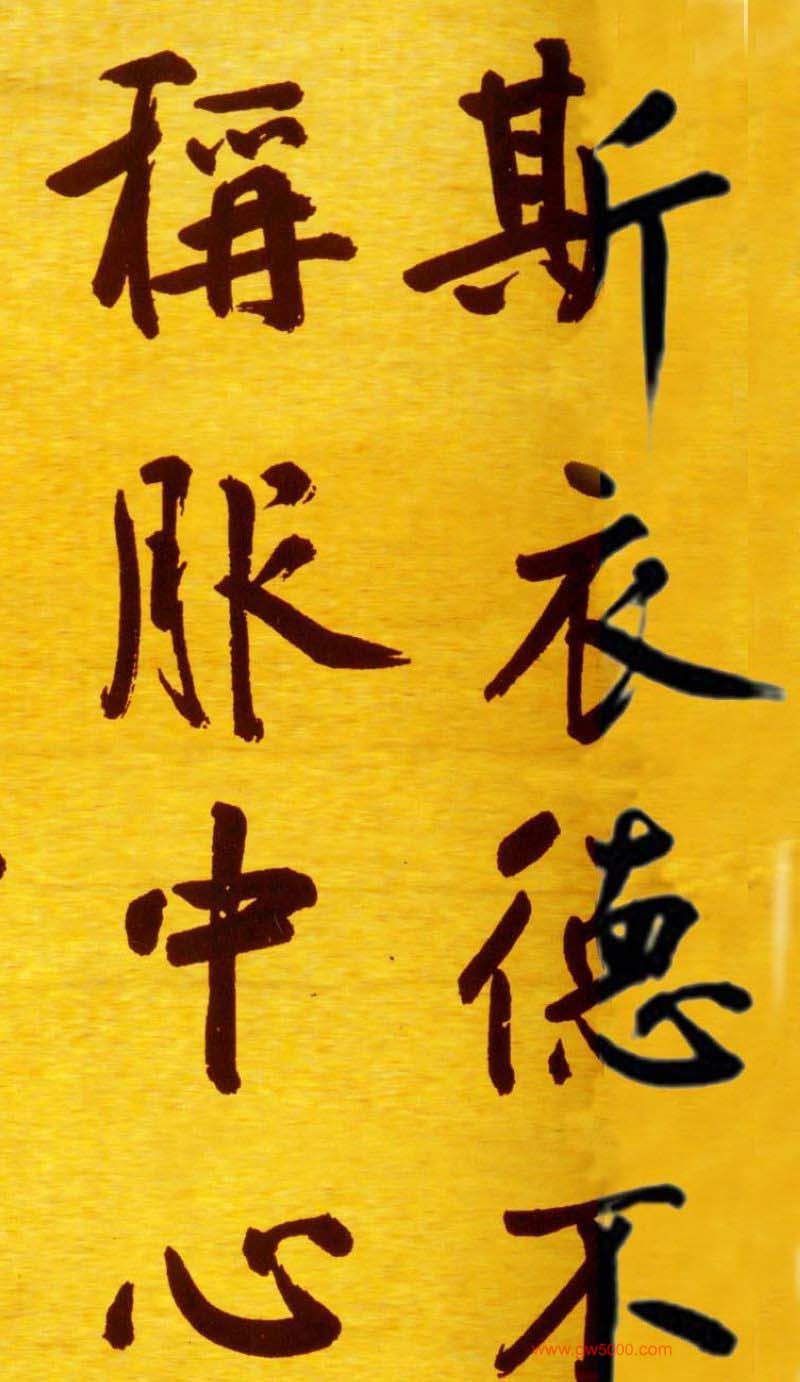 斯衣德不
稱服中心
www.gw5000.com